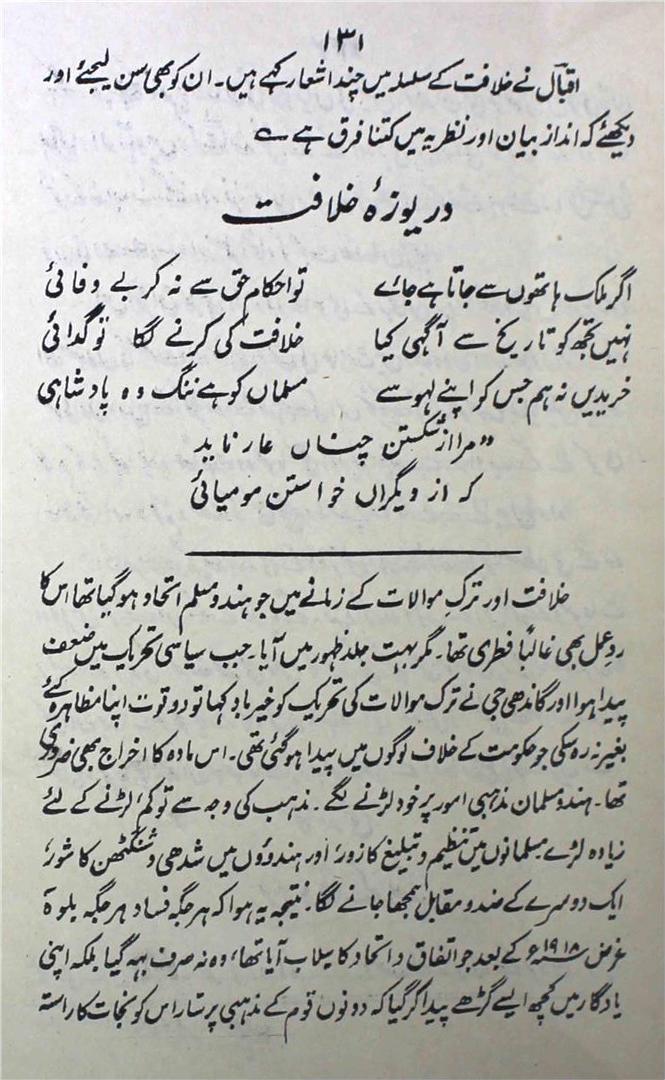 ۱۳۱
اقبالؔ نے خلافت کے سلسلہ میں چند اشعار کہے ہیں۔ ان کو بھی سن لیجئے اور
دیکھئے کہ انداز بیان اور نظریہ میں کتنا فرق ہے ؎
دریوزۂ خلافت
اگر ملک ہاتھوں سے جاتا ہے جائے تو احکام حق سے نہ کر بے وفائی
نہیں تجھ کو تاریخ سے آگہی کیا خلافت کی کرنے لگا تو گدائی
خریدیں نہ ہم جس کو اپنے لہو سے مسلماں کو ہے ننگ وہ پادشاہی
”مرا از شکستن چناں عار ناید
کہ از دیگراں خواستن مومیائی
خلافت اور ترکِ موالات کے زمانے میں جو ہندو مسلم اتحاد ہو گیا تھا اس کا
ردِ عمل بھی غالباً فطری تھا۔ مگر بہت جلد ظہور میں آیا۔ جب سیاسی تحریک میں ضعف
پیدا ہوا اور گاندھی جی نے ترک موالات کی تحریک کو خیر باد کہا تو وہ قوت اپنا مظاہرہ کئے
بغیر نہ رہ سکی جو حکومت کے خلاف لوگوں میں پیدا ہو گئی تھی۔ اس مادہ کا اخراج بھی ضروری
تھا۔ ہندو مسلمان مذہبی امور پر خود لڑنے لگے۔ مذہب کی وجہ سے تو کم، لڑنے کے لئے
زیادہ لڑے۔ مسلمانوں میں تنظیم و تبلیغ کا زور، اور ہندوؤں میں شدھی و سنگٹھن کا شور،
ایک دوسرے کے ضد و مقابل سمجھا جانے لگا۔ نتیجہ یہ ہوا کہ ہر جگہ فساد ہر جگہ بلوۃ
غرض ۱۹۱۸ء کے بعد جو اتفاق و اتحاد کا سیلاب آیا تھا، وہ نہ صرف بہہ گیا بلکہ اپنی
یادگار میں کچھ ایسے گڑھے پیدا کر گیا کہ دونوں قوم کے مذہبی پرستار اس کو نجات کا راستہ